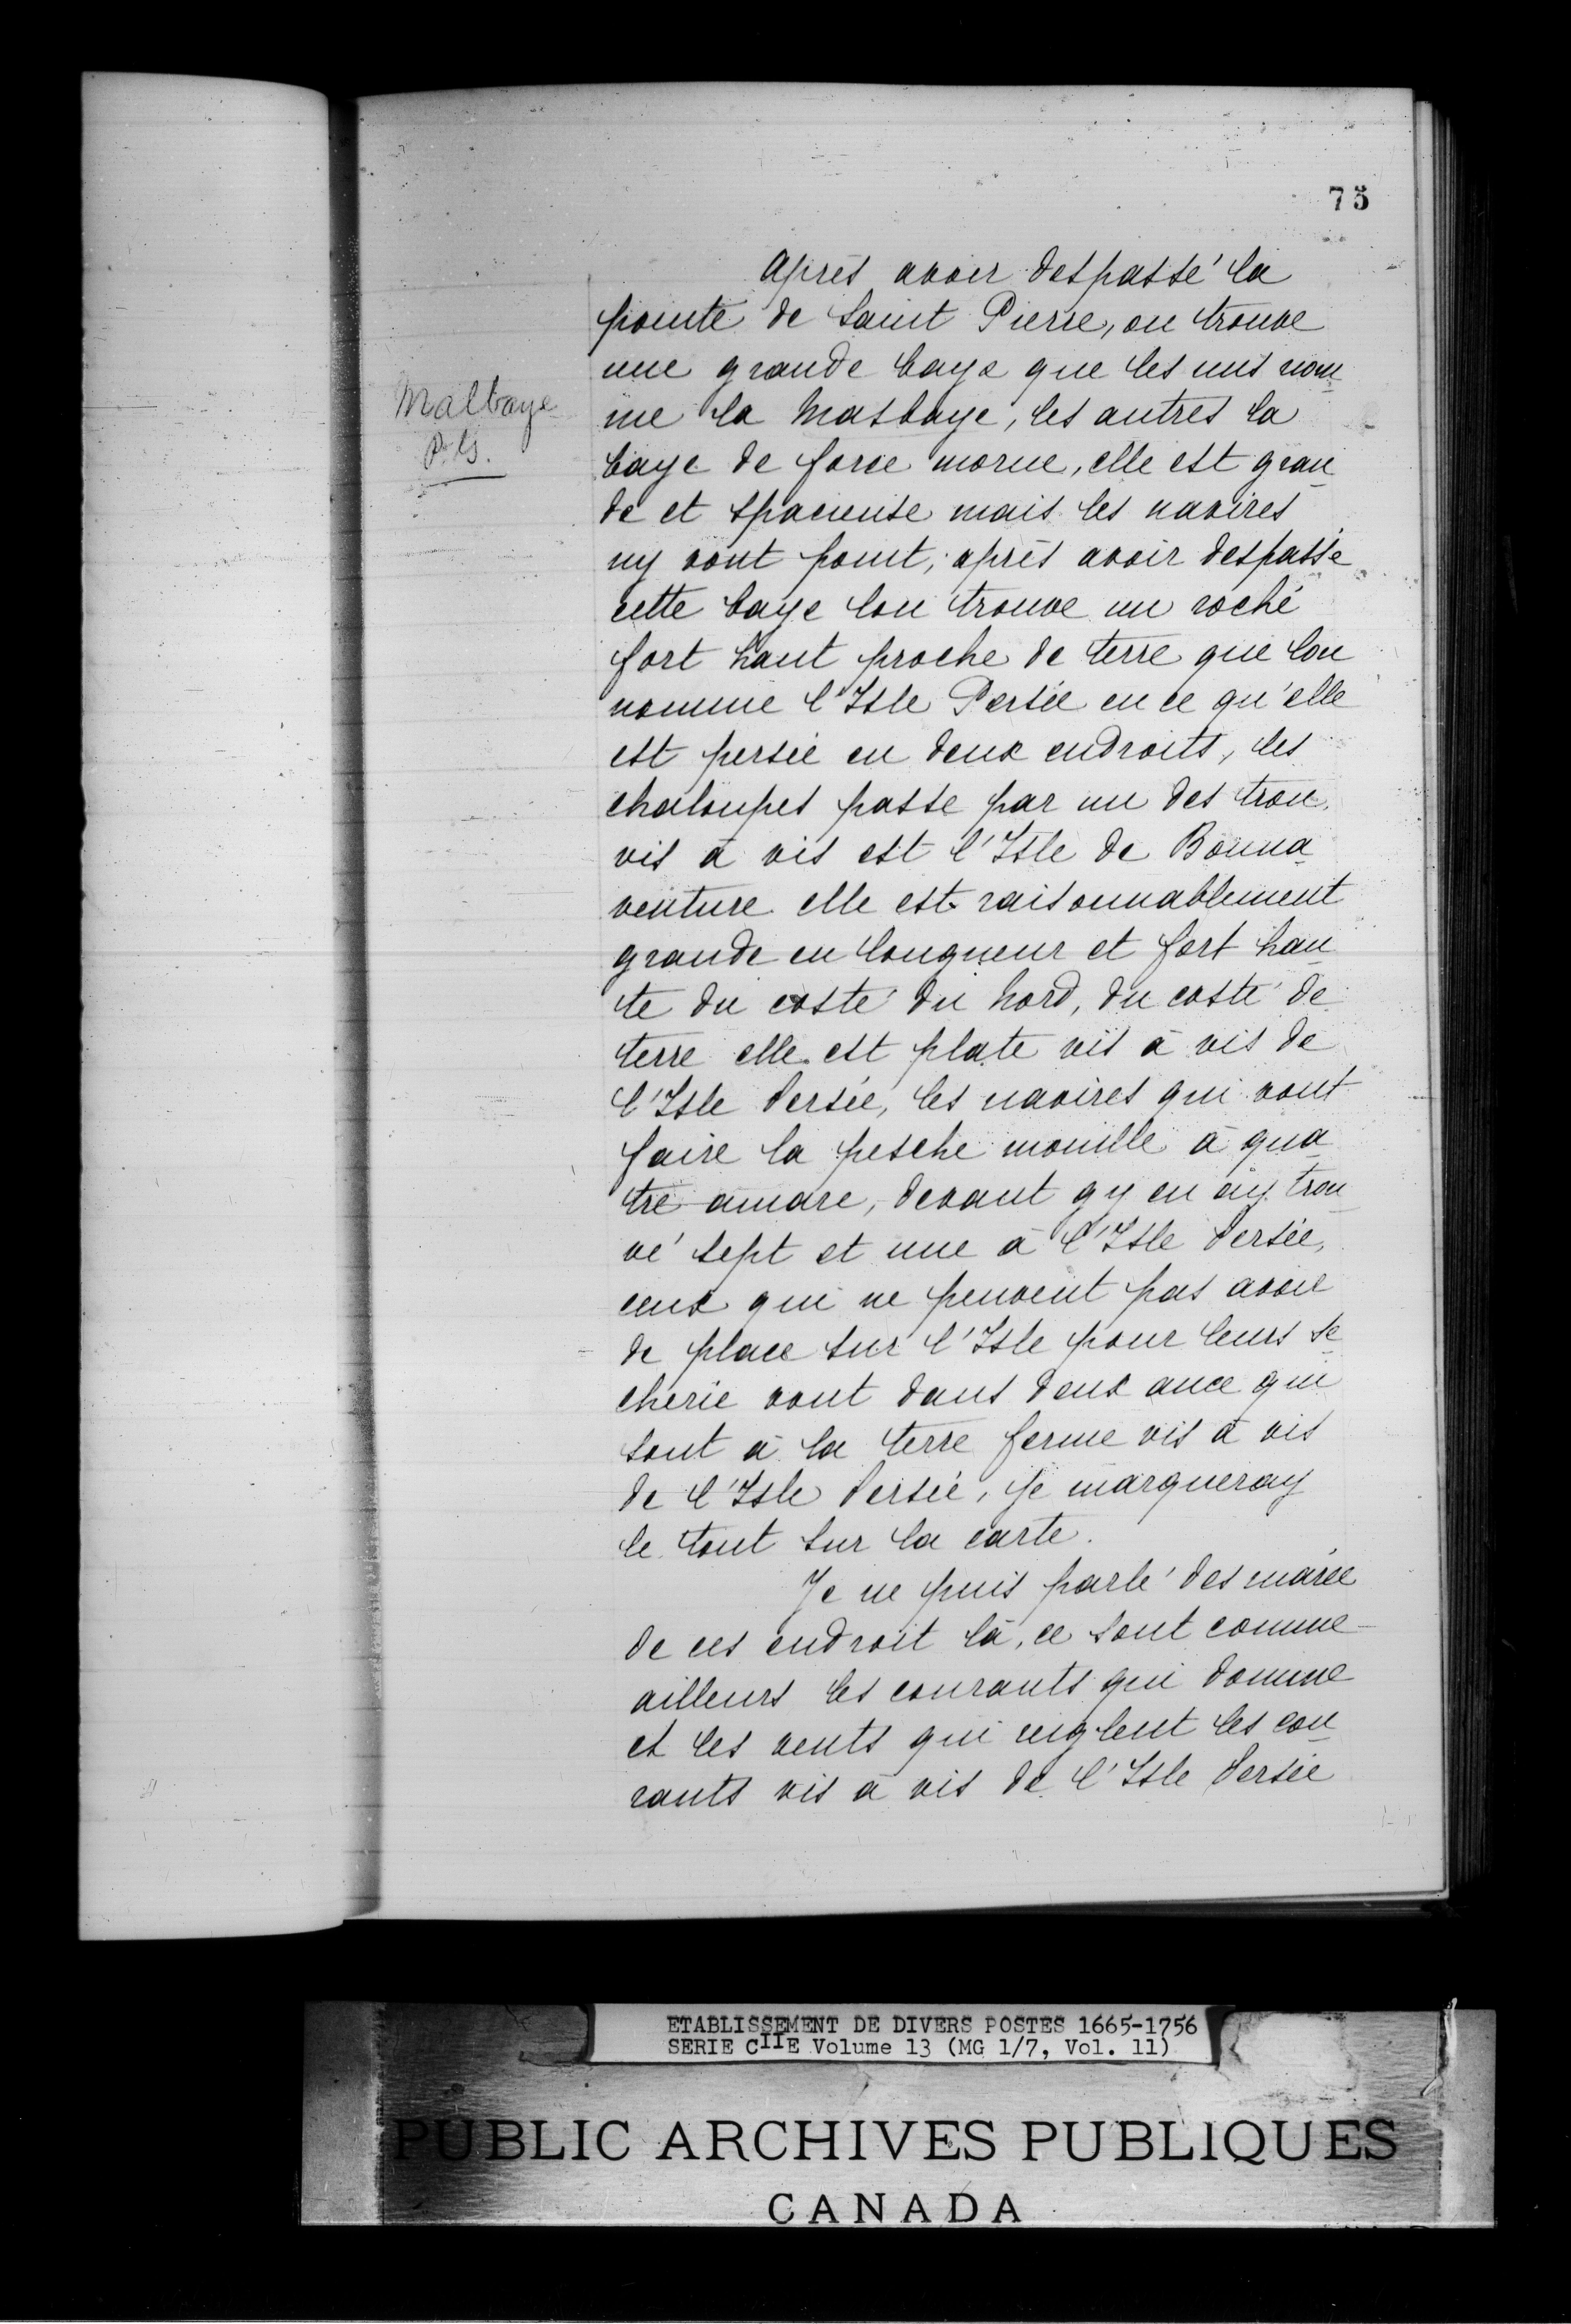 75
Après avoir despassé la
pointe de Saint Pierre, on trouve
une grande baye que les uns nom
me la Masbaye, les autres la
baye de force morue, elle est gran
de et spacieuse mais les navires
ny vont point, après avoir despassé
cette baye lon trouve un roché
fort haut proche de terre que lon
nomme l'Isle Persée en ce qu'elle
est persée en deux endroits, les
chaloupes passe par un des trou,
vis à vis est l'Isle de Bonna
venture elle est raisonnablement
grande en longueur et fort hau
te du costé du nord, du costé de
terre elle est plate vis à vis de
l'Isle Persée, les navires qui vont
faire la pesche mouille à qua
tre amare, devant qy en ay trou
vé sept et une à l'Isle Persée,
ceux qui ne peuvent pas avoir
de place sur l'Isle pour leurs se
cherie vont dans deux ance qui
sont à la terre ferme vis à vis
de l'Isle Persée, je marqueray
le tout sur la carte.
Je ne puis parlé des marée
de ces endroit là, ce sont comme
ailleurs les courants qui domine
et les vents qui reiglent les cou
rants vis à vis de l'Isle Persée
Malbaye
P. G.
ETABLISSEMENT DE DIVERS POSTES 1665-1756
SERIE CIIE Volume 13 (MG 1/7, Vol. 11)
PUBLIC ARCHIVES PUBLIQUES
CANADA